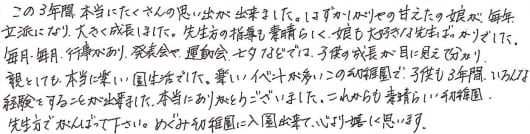 この3年間、本当にたくさんの思い出が出来ました。はずかしがりやの甘えたの娘が、毎年
立派になり、大きく成長しました。先生方の指導も素晴らしく、娘も大好きな先生ばかりでした。
毎月・毎月、行事があり、発表会や、運動会、七夕などでは、子供の成長が目に見えて分かり、
親としても、本当に楽しい園生活でした。楽しいイベントが多いこの幼稚園で、子供も3年間、いろんな
経験をすることが出来ました。本当にありがとうございました。これからも素晴らしい幼稚園、
先生方でがんばって下さい。めぐみ幼稚園に入園出来て、心より嬉しく思います。